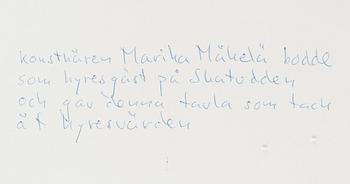 konstnären Marika Mäkelä bodde
som hyresgäst på Skatudden
och gav denna tavla som tack
åt hyresvärden